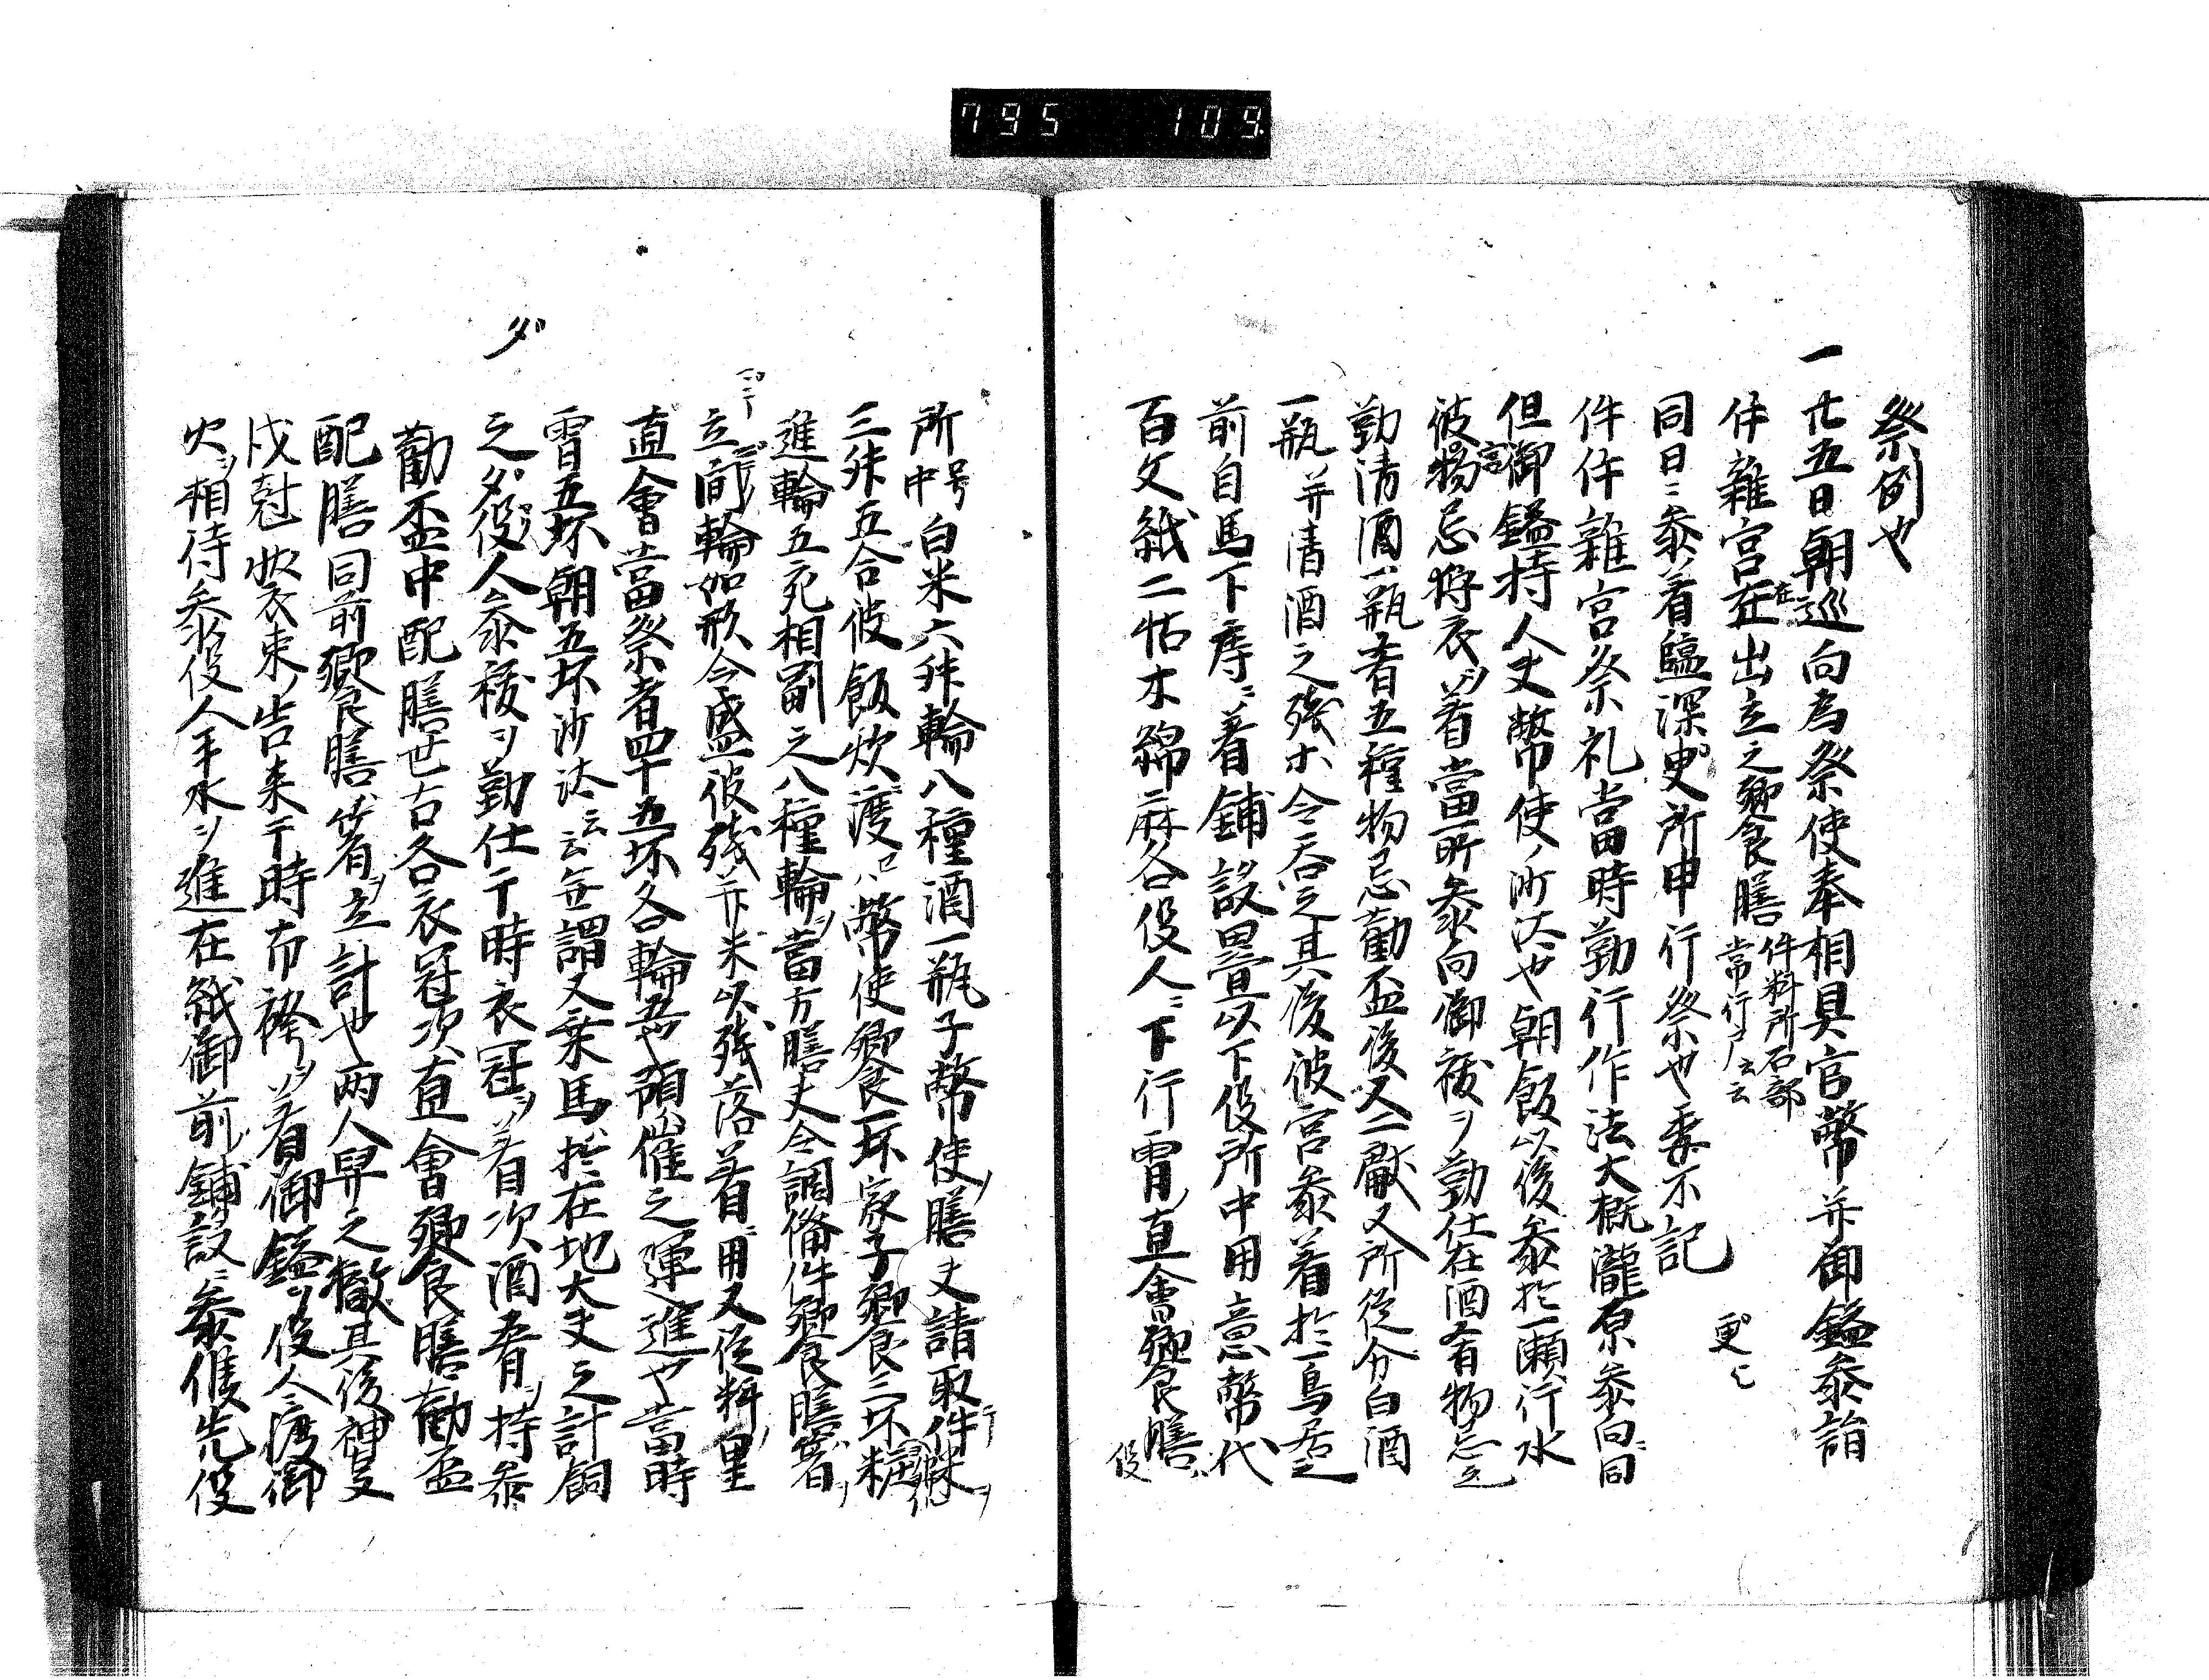 795 109.
祭例也
一廿五日朝巡向為祭使奉相具官幣并御鎰参詣
件雑宮在出立之饗膳件料所石部常行ノ云云
同日ニ参着臨深更所申行祭也委不記
件件雑宮祭礼當時勤行作法大概瀧原参向同
但御鎰持人丈幣使ノ沙汰也朝飯以後参於一瀬行水
彼物忌狩衣ヲ着當所参向御祓ヲ勤仕在酒肴物忌立
勤清酒一瓶肴五種物忌勧盃後又一獻又所従分白酒
一瓶并清酒之残ホ令呑之其後彼宮参着於一鳥居之
前自馬下房ニ着鋪設畳以下役所中用意幣代
百文紙二帖木綿麻各役人ニ下行霄直會饗膳役
所中号白米六舛輪八種酒一瓶子幣使膳丈請取件米
三舛五合彼飯炊渡ハ幣使饗一坏家子饗三坏
進輪五死相副之八種輪當方膳丈令調備件饗膳着
立間輪如形令盛彼残并米以残落着用又従料里
直會當祭者四十五坏各輪五也預催之運進也當時
霄五坏朝五坏沙汰云云無謂又乗馬於在地大丈之計飼
之夕役人参祓ヲ勤仕于時衣冠ヲ着次酒肴ヲ持参
勧盃中配膳世古各衣冠次直會饗膳勧盃
配膳同前饗膳箸ヲ立計也両人昇之撤其後神叓
戌尅装束告来于時布袴ヲ着御鎰ヲ役人渡御
火ヲ相待参役人手水ヲ進在紙御前鋪設ニ参候先役